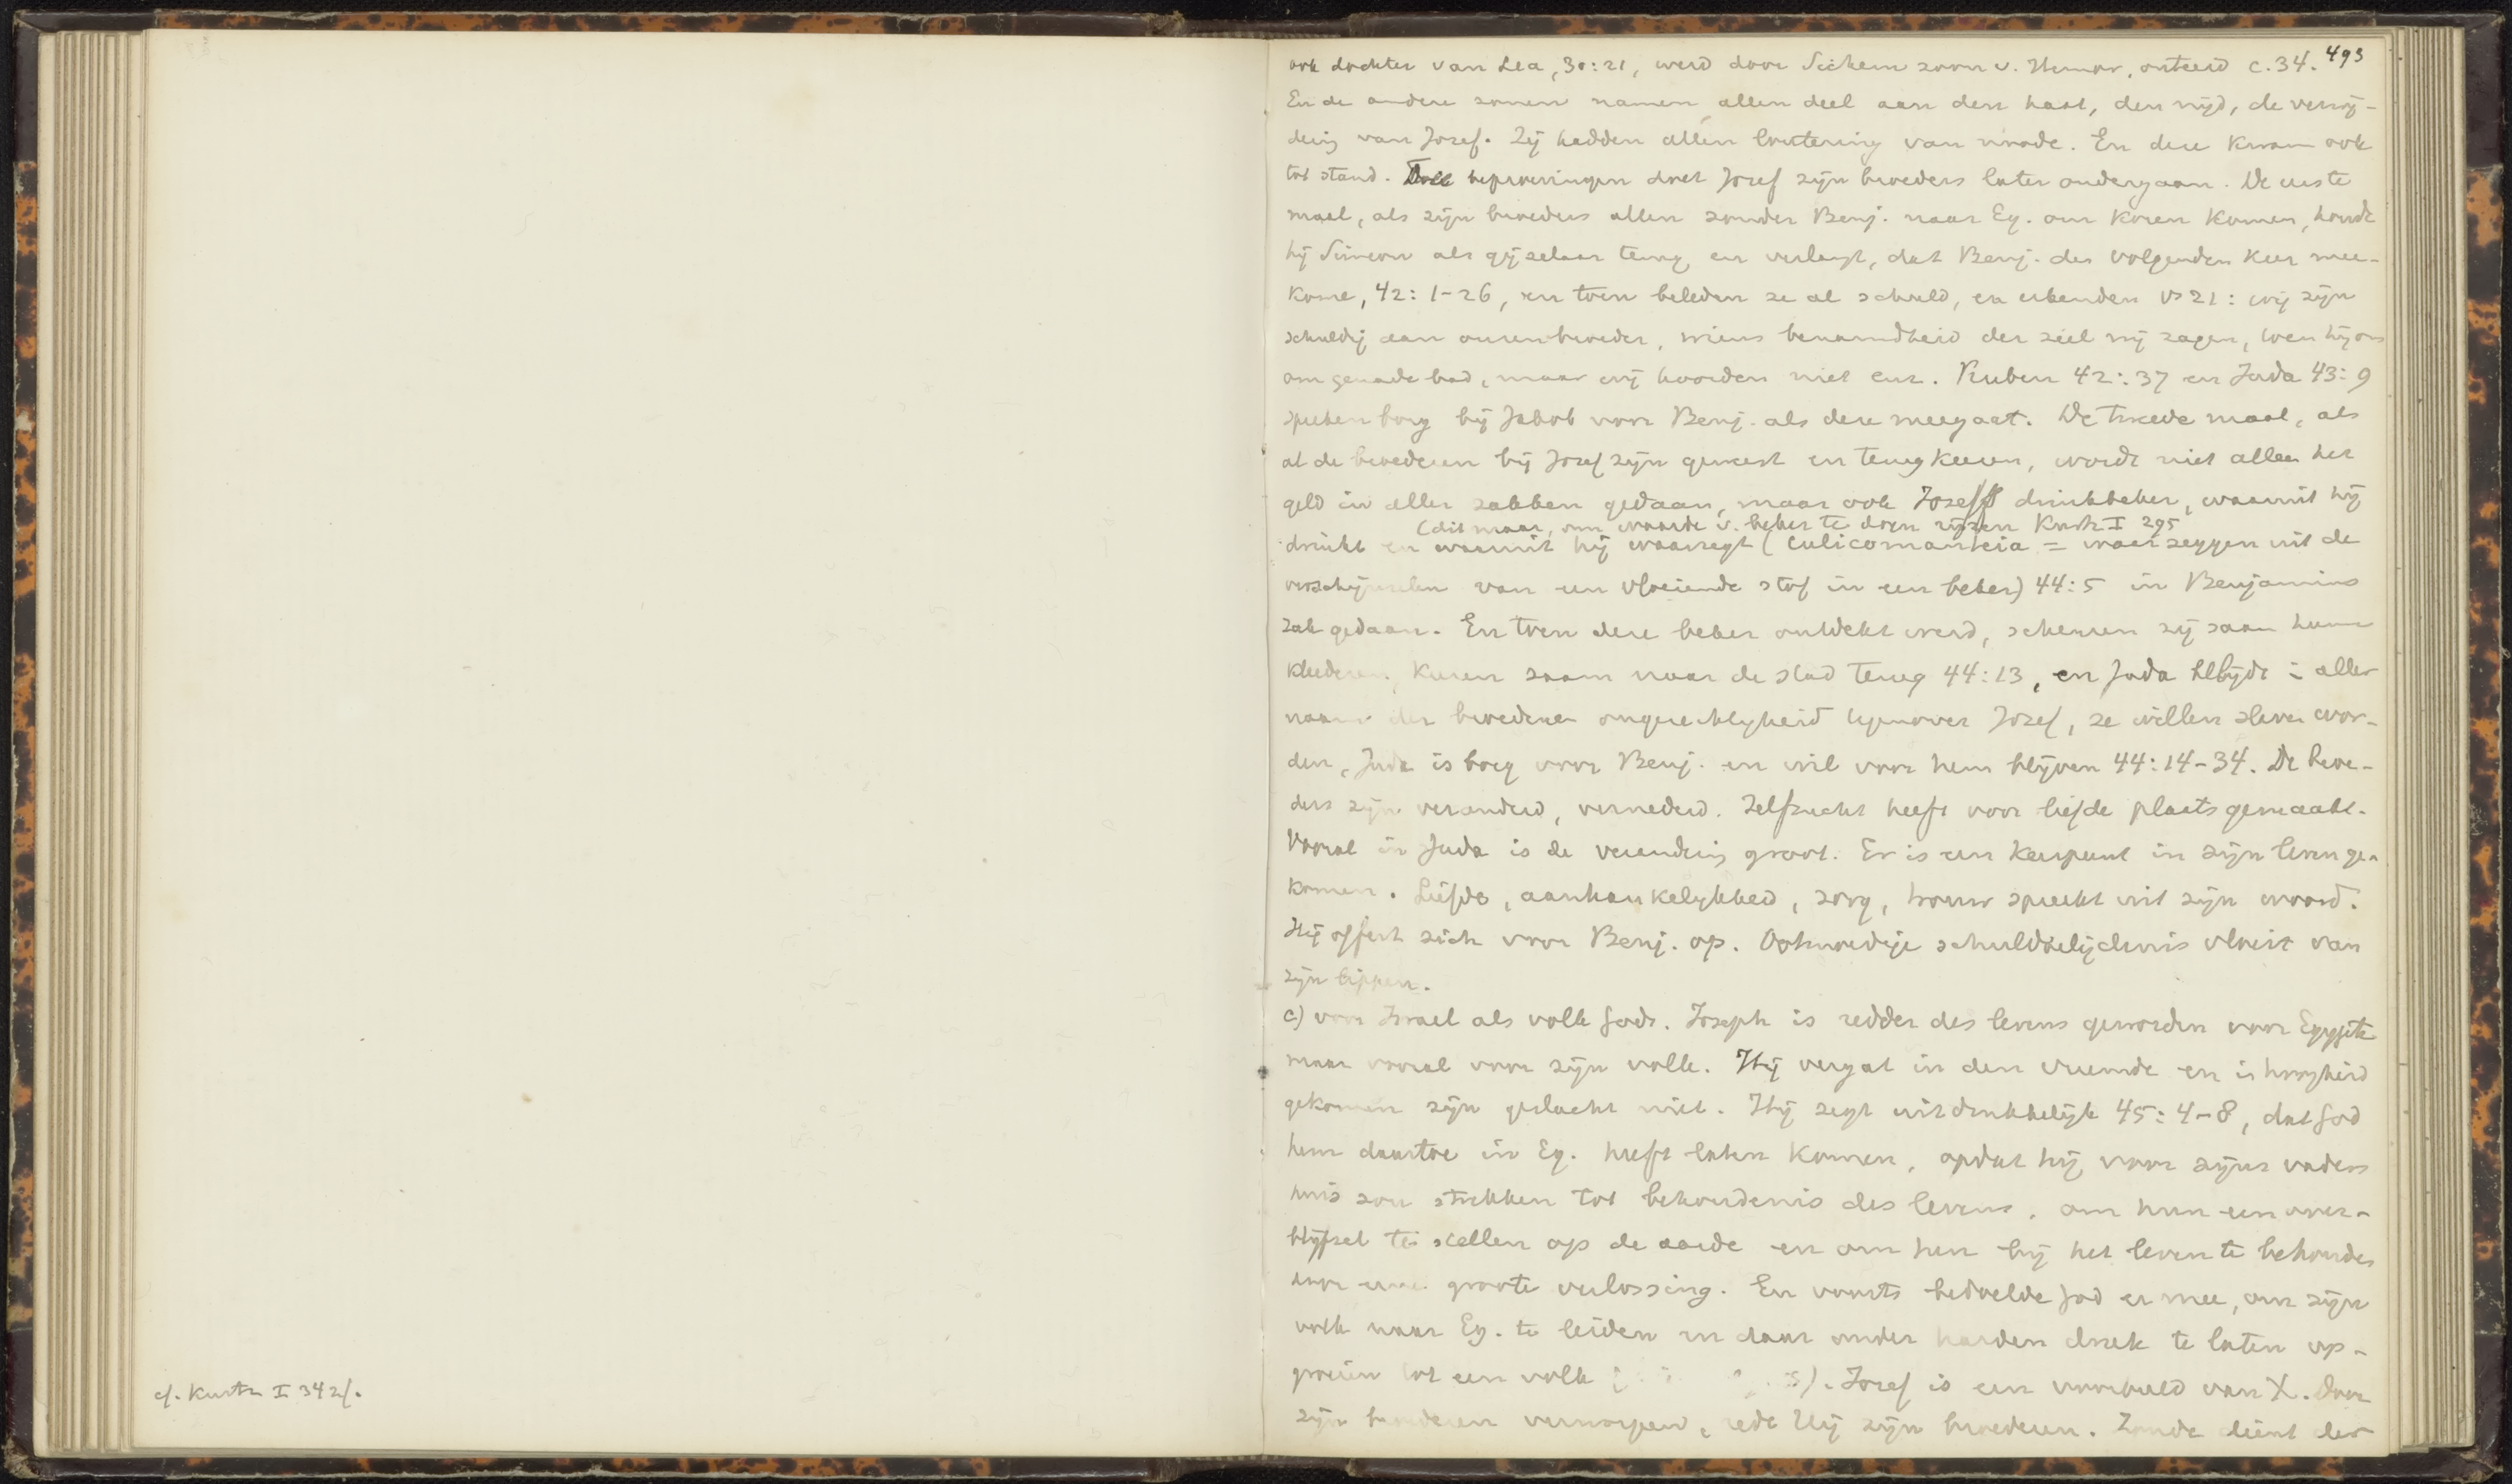 cf. Kurtz I 342f.
493
ook dochter van Lea, 30:21, werd door Sichem zoon v. Hemor, onteerd c. 34.
En de andere zonen namen allen deel aan den haat, den nijd, de verwij-
dering van Jozef. Zij hadden allen loutering van noode. En deze kwam ook
tot stand. beproevingen doet Jozef zijn broeders later ondergaan. De eerste
maal, als zijn broeders allen zonder Benj. naar Eg. om koren komen, houdt
hij Simeon als gijzelaar terug en verlangt, dat Benj. den volgenden keer mee-
kome, 42:1-26, en toen beleden ze al schuld, en erkenden vs 21: wij zijn
schuldig aan onzen broeder, wiens benauwdheid der ziel wij zagen, toen hij ons
om genade bad, maar wij hoorden niet enz. Ruben 42:37 en Juda 43:9
spreken borg bij Jakob voor Benj. als deze meegaat. De tweede maal, als
al de broederen bij Jozef zijn geweest en terugkeeren, wordt niet alleen het
geld in aller zakken gedaan, maar ook Jozefs drinkbeker, waaruit hij
(dit maar, om waarde v. beker te doen rijzen Kurtz I 295
drinkt en waaruit hij waarzegt (culicomanteia = waarzeggen uit de
verschijnselen van een vloeiende stof in een beker) 44:5 in Benjamins
zak gedaan. En toen deze beker ontdekt werd, scheuren zij saam hunne
kleederen, keeren saam naar de stad terug 44:13, en Juda belijdt in aller
naam der broederen ongerechtigheid tegenover Jozef, ze willen slaven wor-
den, Juda is borg voor Benj. en wil voor hem blijven 44:14-34. De broe-
ders zijn veranderd, vernederd. Zelfzucht heeft voor liefde plaats gemaakt.
Vooral in Juda is de verandering groot. Er is een keerpunt in zijn leven ge-
komen. Liefde, aanhankelijkheid, zorg, trouw spreekt uit zijn woord.
Hij offert zich voor Benj. op. Ootmoedige schuldbelijdenis vloeit van
zijn lippen.
c) voor Israel als volk Gods. Joseph is redder des levens geworden voor Egypte
maar vooral voor zijn volk. Hij vergat in den vreemde en in hoogheid
gekomen zijn geslacht niet. Hij zegt uitdrukkelijk 45:4-8, dat God
hem daartoe in Eg. heeft laten komen, opdat hij voor zijns vaders
huis zou strekken tot behoudenis des levens, om hun een over-
blijfsel te stellen op de aarde en om hen bij het leven te behouden
door eene groote verlossing. En voorts bedoelde God er mee, om zijn
volk naar Eg. te leiden en daar onder harden druk te laten op-
groeien tot een volk ). Jozef is een voorbeeld van X. Door
zijn broederen verworpen, redt Hij zijn broederen. Zonde dient der